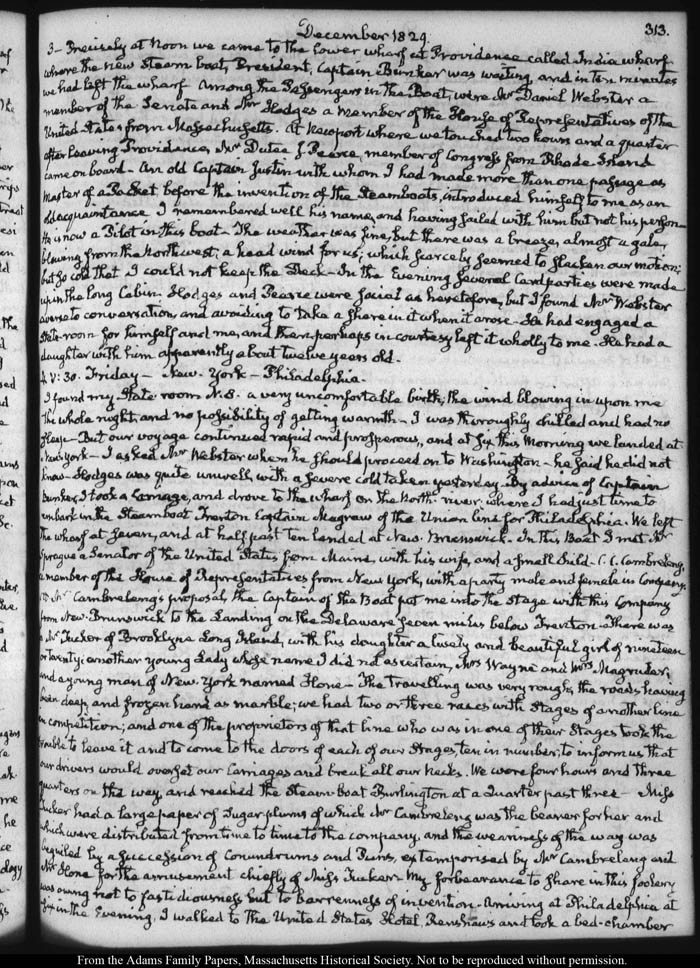 December 1829.
313.
3– Precisely at Noon we came to the lower wharf at Providence called India wharf
where the new Steam boat, President, Captain Bunker was waiting, and in ten minutes
we had left the wharf. Among the Passengers in the Boat, were Mr Daniel Webster a
member of the Senate and Mr Hodges a member of the House of Representatives of the
United States from Massachusetts. At Newport where we touched two hours and a quarter
after leaving Providence, Mr Dutee J Pearce, member of Congress from Rhode Island
came on board– An old Captain Justin with whom I had made more than one passage as
Master of a Packet before the invention of the Steamboats, introduced himself to me as an
old acquaintance. I remembered well his name, and having sailed with him but not his person–
He is now a Pilot in this boat– The weather was fine, but there was a breeze, almost a gale,
blowing from the Northwest; a head wind for us; which scarcely seemed to slacken our motion;
but so cold that I could not keep the Deck– In the Evening several Card parties were made
up in the long Cabin. Hodges and Pearce were social as heretofore, but I found Mr Webster
averse to conversation, and avoiding to take a share in it when it arose– He had engaged a
State-room for himself and me, and then perhaps in courtesy left it wholly to me. He had a
daughter with him apparently about twelve years old.
4. V: 30. Friday– New-York– Philadelphia.
I found my State room N. 8. a very uncomfortable birth; the wind blowing in upon me
the whole night, and no possibility of getting warmth– I was thoroughly chilled and had no
sleep– But our voyage continued rapid and prosperous, and at six this Morning we landed at
New-York– I asked Mr Webster when he should proceed on to Washington– he said he did not
know– Hodges was quite unwell with a severe cold taken yesterday. By advice of Captain
Bunker, I took a Carriage, and drove to the wharf on the North river where I had just time to
embark in the Steamboat Trenton Captain Magraw of the Union line for Philadelphia. We left
the wharf at seven, and at half past ten landed at New-Brunswick. In this Boat I met Mr
Sprague a Senator of the United States from Maine, with his wife, and a small child– C. C. Cambreleng
a member of the House of Representatives from New York, with a party male and female in Company
At Mr Cambreleng's proposal, the Captain of the Boat put me into the Stage with this Company
from New-Brunswick to the Landing on the Delaware seven miles below Trenton– There was
a Mr Tucker of Brooklyne Long Island, with his daughter a lively and beautiful girl of nineteen
or twenty; another young Lady whose name I did not ascertain, Mrs Wayne and Mrs Magruder;
and a young man of New-York named Hone– The travelling was very rough, the roads having
been deep, and frozen hard as marble; we had two or three races with Stages of another line
in competition; and one of the proprietors of that line who was in one of their Stages took the
trouble to leave it and to come to the doors of each of our Stages, ten in number, to inform us that
our drivers would overset our Carriages and break all our Necks. We were four hours and three
quarters on the way, and reached the Steam-boat Burlington at a Quarter past three– Miss
Tucker had a large paper of Sugar-plums of which Mr Cambreleng was the bearer for her and
which were distributed from time to time to the company, and the weariness of the way was
beguiled by a succession of Conundrums and Puns, extemporised by Mr Cambreleng and
Mr Hone for the amusement chiefly of Miss Tucker– My forbearance to share in this foolery
was owing not to fastidiousness but to barrenness of invention– Arriving at Philadelphia at
six in the Evening, I walked to the United States Hotel, Renshaw's and took a bed-chamber
From the Adams Family Papers, Massachusetts Historical Society. Not to be reproduced without permission.